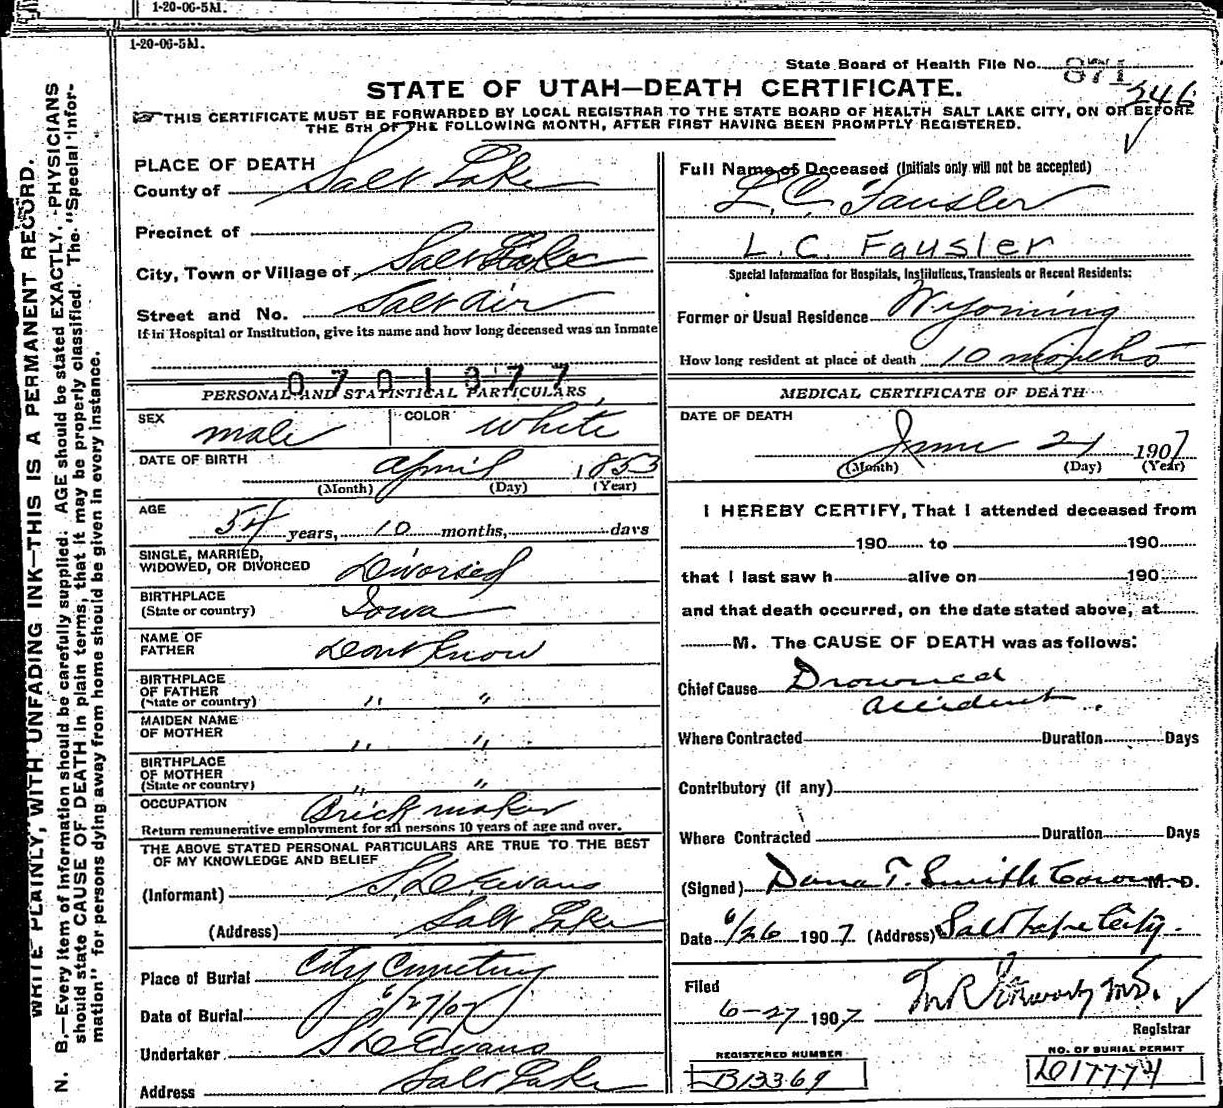 1-20-06-5M.
1-20-06-5M.
State Board of Health File No. 871
246
STATE OF UTAH—DEATH CERTIFICATE.
THIS CERTIFICATE MUST BE FORWARDED BY LOCAL REGISTRAR TO THE STATE BOARD OF HEALTH SALT LAKE CITY, ON OR BEFORE
THE 5TH OF THE FOLLOWING MONTH, AFTER FIRST HAVING BEEN PROMPTLY REGISTERED.
WRITE PLAINLY, WITH UNFADING INK—THIS IS A PERMANENT RECORD.
N. B.—Every item of information should be carefully supplied. AGE should be stated EXACTLY. PHYSICIANS
should state CAUSE OF DEATH in plain terms, that it may be properly classified. The "Special Infor-
mation" for persons dying away from home should be given in every instance.
PLACE OF DEATH
County of Salt Lake
Precinct of
City, Town or Village of Salt Lake
Street and No. Salt Air
If in Hospital or Institution, give its name and how long deceased was an Inmate
0701377
PERSONAL AND STATISTICAL PARTICULARS
SEX male COLOR white
DATE OF BIRTH April 1853
(Month) (Day) (Year)
AGE 54 years, 10 months, days
SINGLE, MARRIED,
WIDOWED, OR DIVORCED Divorsed
BIRTHPLACE
(State or country) Iowa
NAME OF
FATHER Dont Know
BIRTHPLACE
OF FATHER
(State or country) " "
MAIDEN NAME
OF MOTHER " "
BIRTHPLACE
OF MOTHER
(State or country) " "
OCCUPATION Brick maker
Return remunerative employment for all persons 10 years of age and over.
THE ABOVE STATED PERSONAL PARTICULARS ARE TRUE TO THE BEST
OF MY KNOWLEDGE AND BELIEF
(Informant) S.D. Evans
(Address) Salt Lake
Place of Burial City Cemetery
Date of Burial 6/27/07
Undertaker S D Evans
Address Salt Lake
Full Name of Deceased (Initials only will not be accepted)
L.C. Fausler
L. C. Fausler
Special Information for Hospitals, Institutions, Transients or Recent Residents:
Former or Usual Residence Wyoming
How long resident at place of death 10 months
MEDICAL CERTIFICATE OF DEATH
DATE OF DEATH
June 21 1907
(Month) (Day) (Year)
I HEREBY CERTIFY, That I attended deceased from
190 to 190
that I last saw h alive on 190
and that death occurred, on the date stated above, at
M. The CAUSE OF DEATH was as follows:
Chief Cause Drowned
accident.
Where Contracted Duration Days
Contributory (if any)
Where Contracted Duration Days
(Signed) Dana T. Smith Coroner M. D.
Date 6/26 1907 (Address) Salt Lake City.
Filed
6-27 1907 M.D.
Registrar
REGISTERED NUMBER
B13369
NO. OF BURIAL PERMIT
D17774